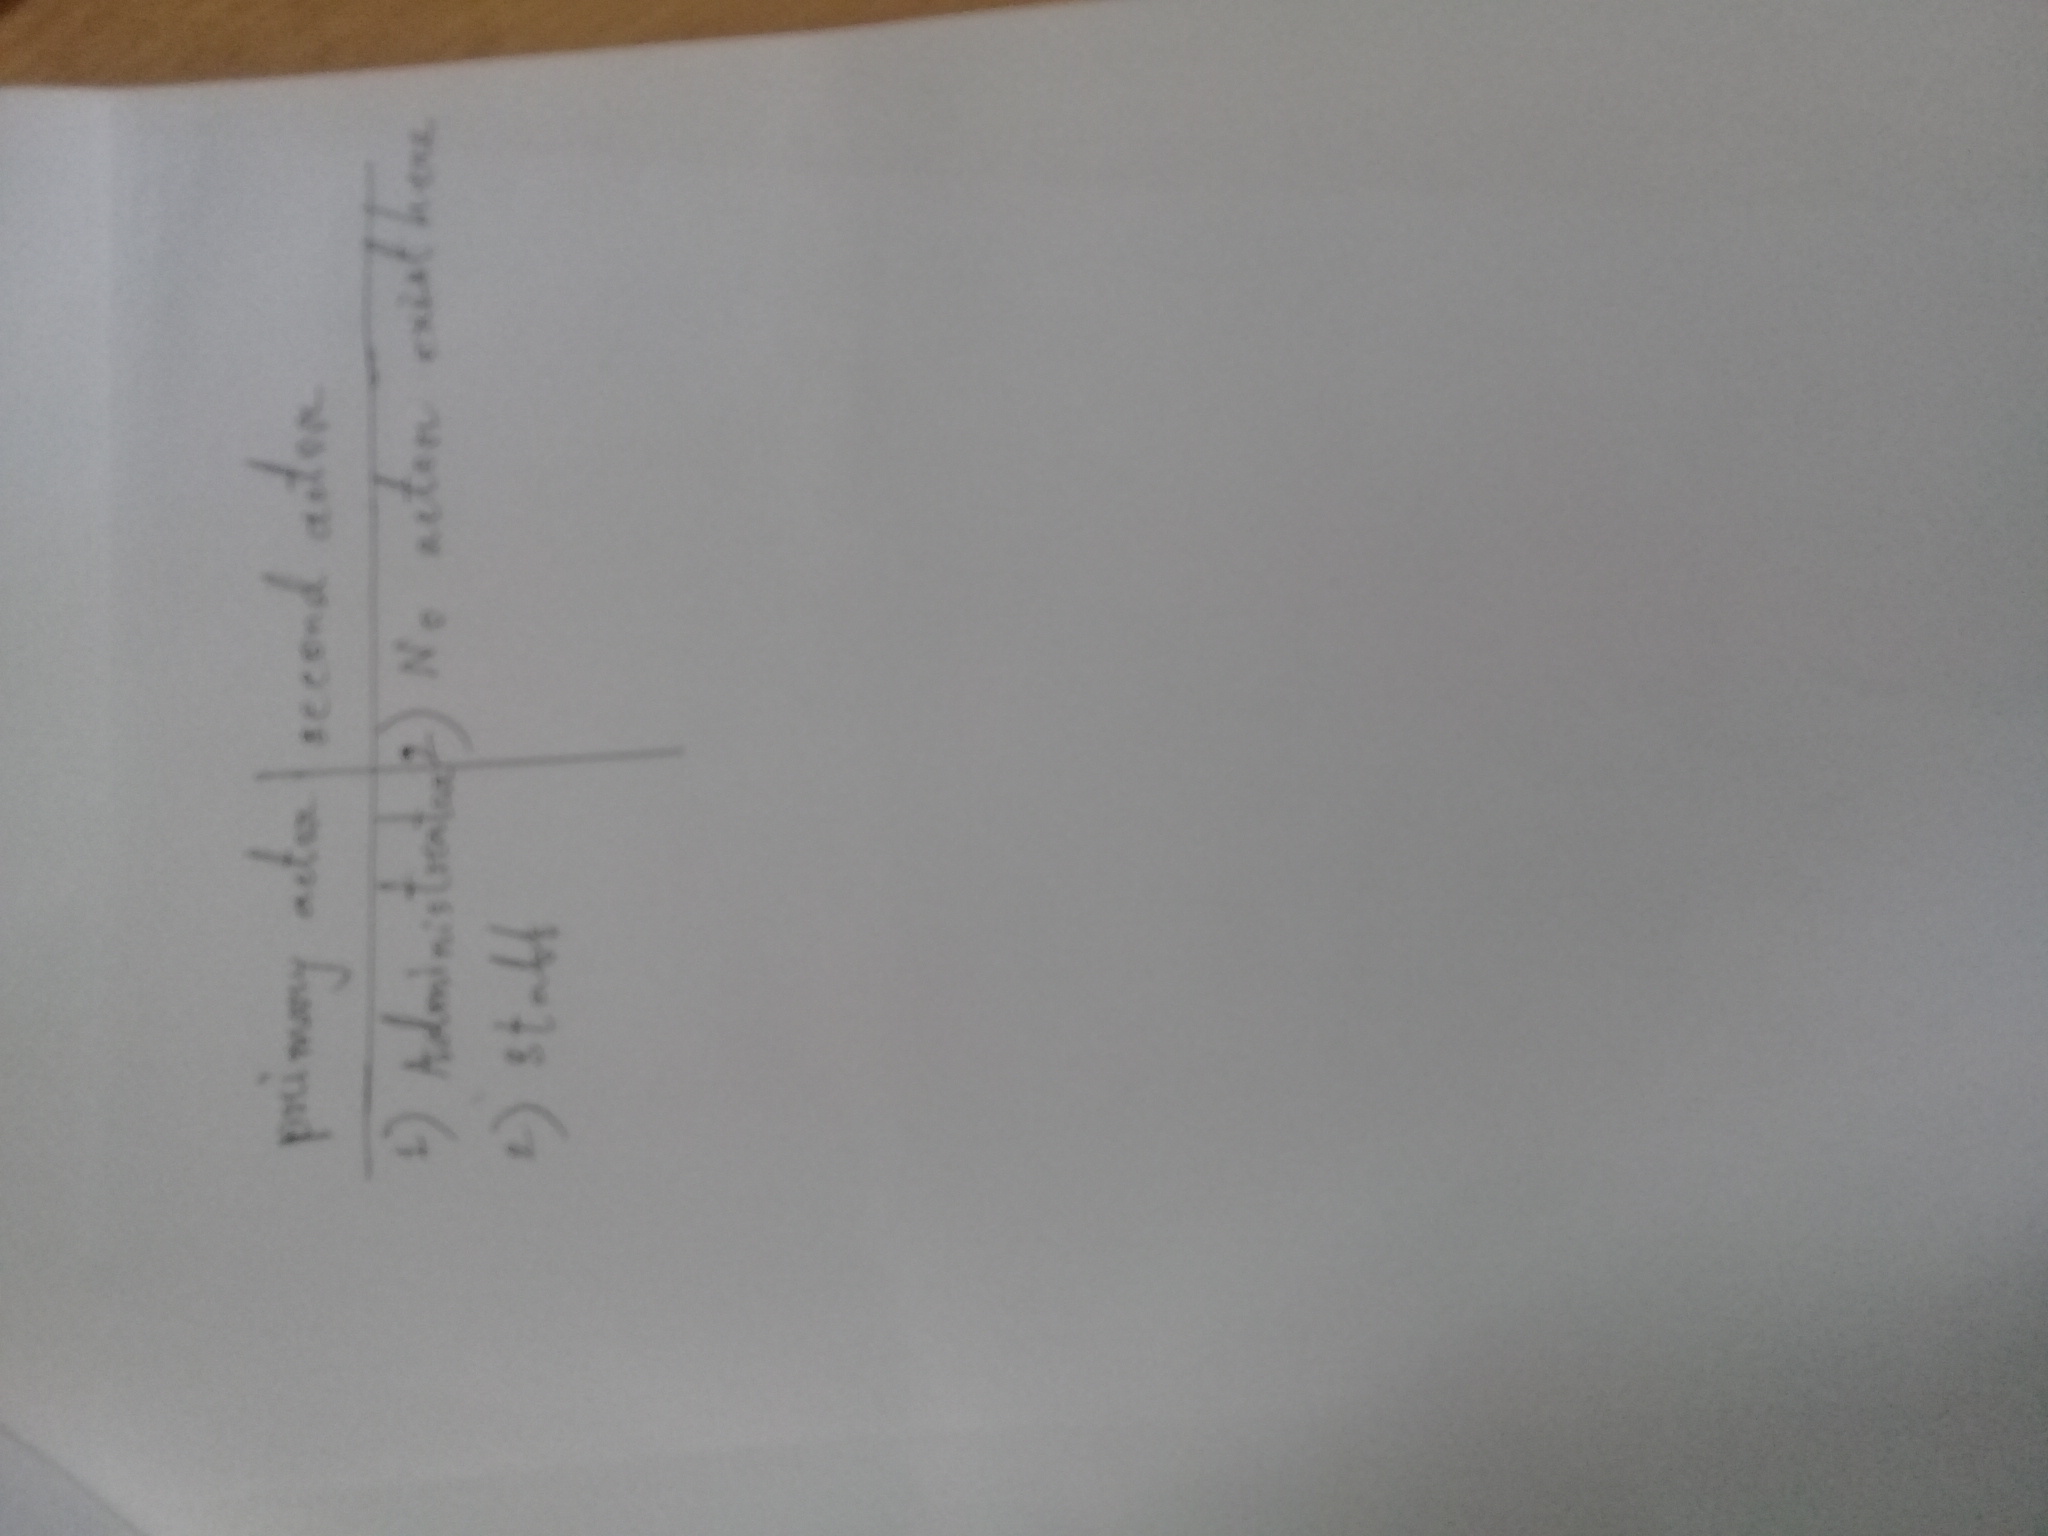 primary actor | second actor
1) Administrator 2) No actor exist here
2) staff